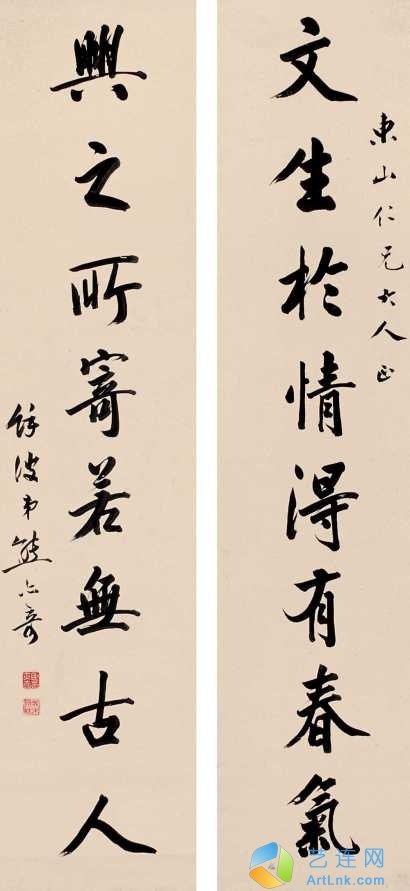 東山仁兄大人正
文生於情得有春氣
興之所寄若無古人
餘波弟熊亦奇
艺连网
ArtLnk.com